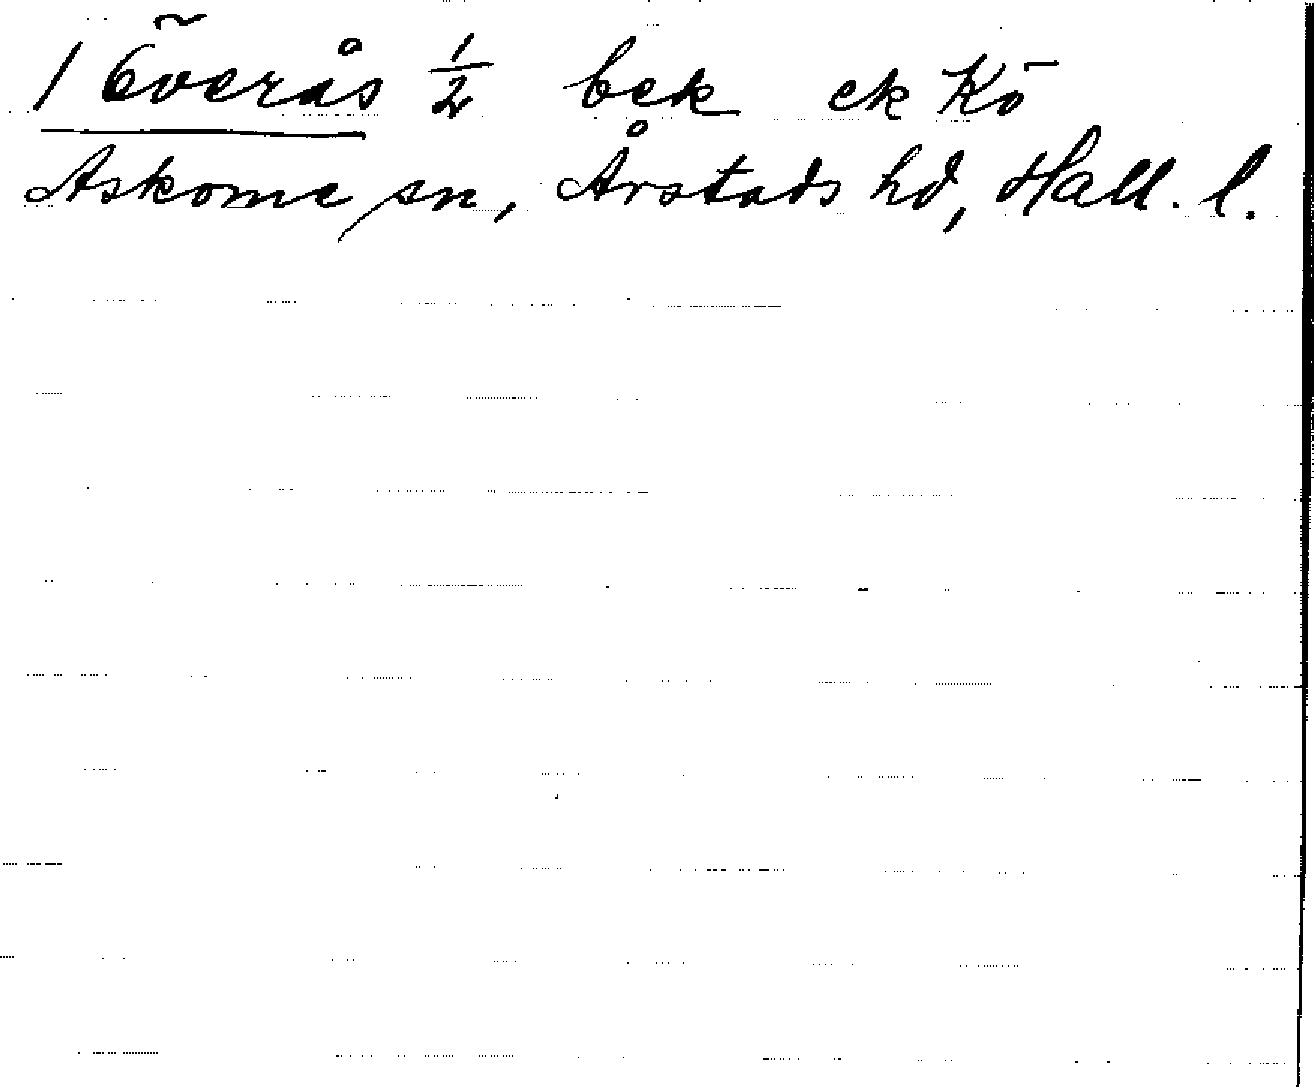 1 Överås 1/2 bek ek Kö
Askome sn, Årstads hd, Hall. l.